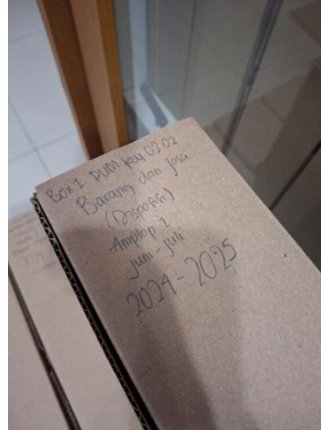 Box 1 DUM KU 07.02
Barang dan Jasa
(Disposisi)
Amplop 1
Juni - Juli
2024 - 2025